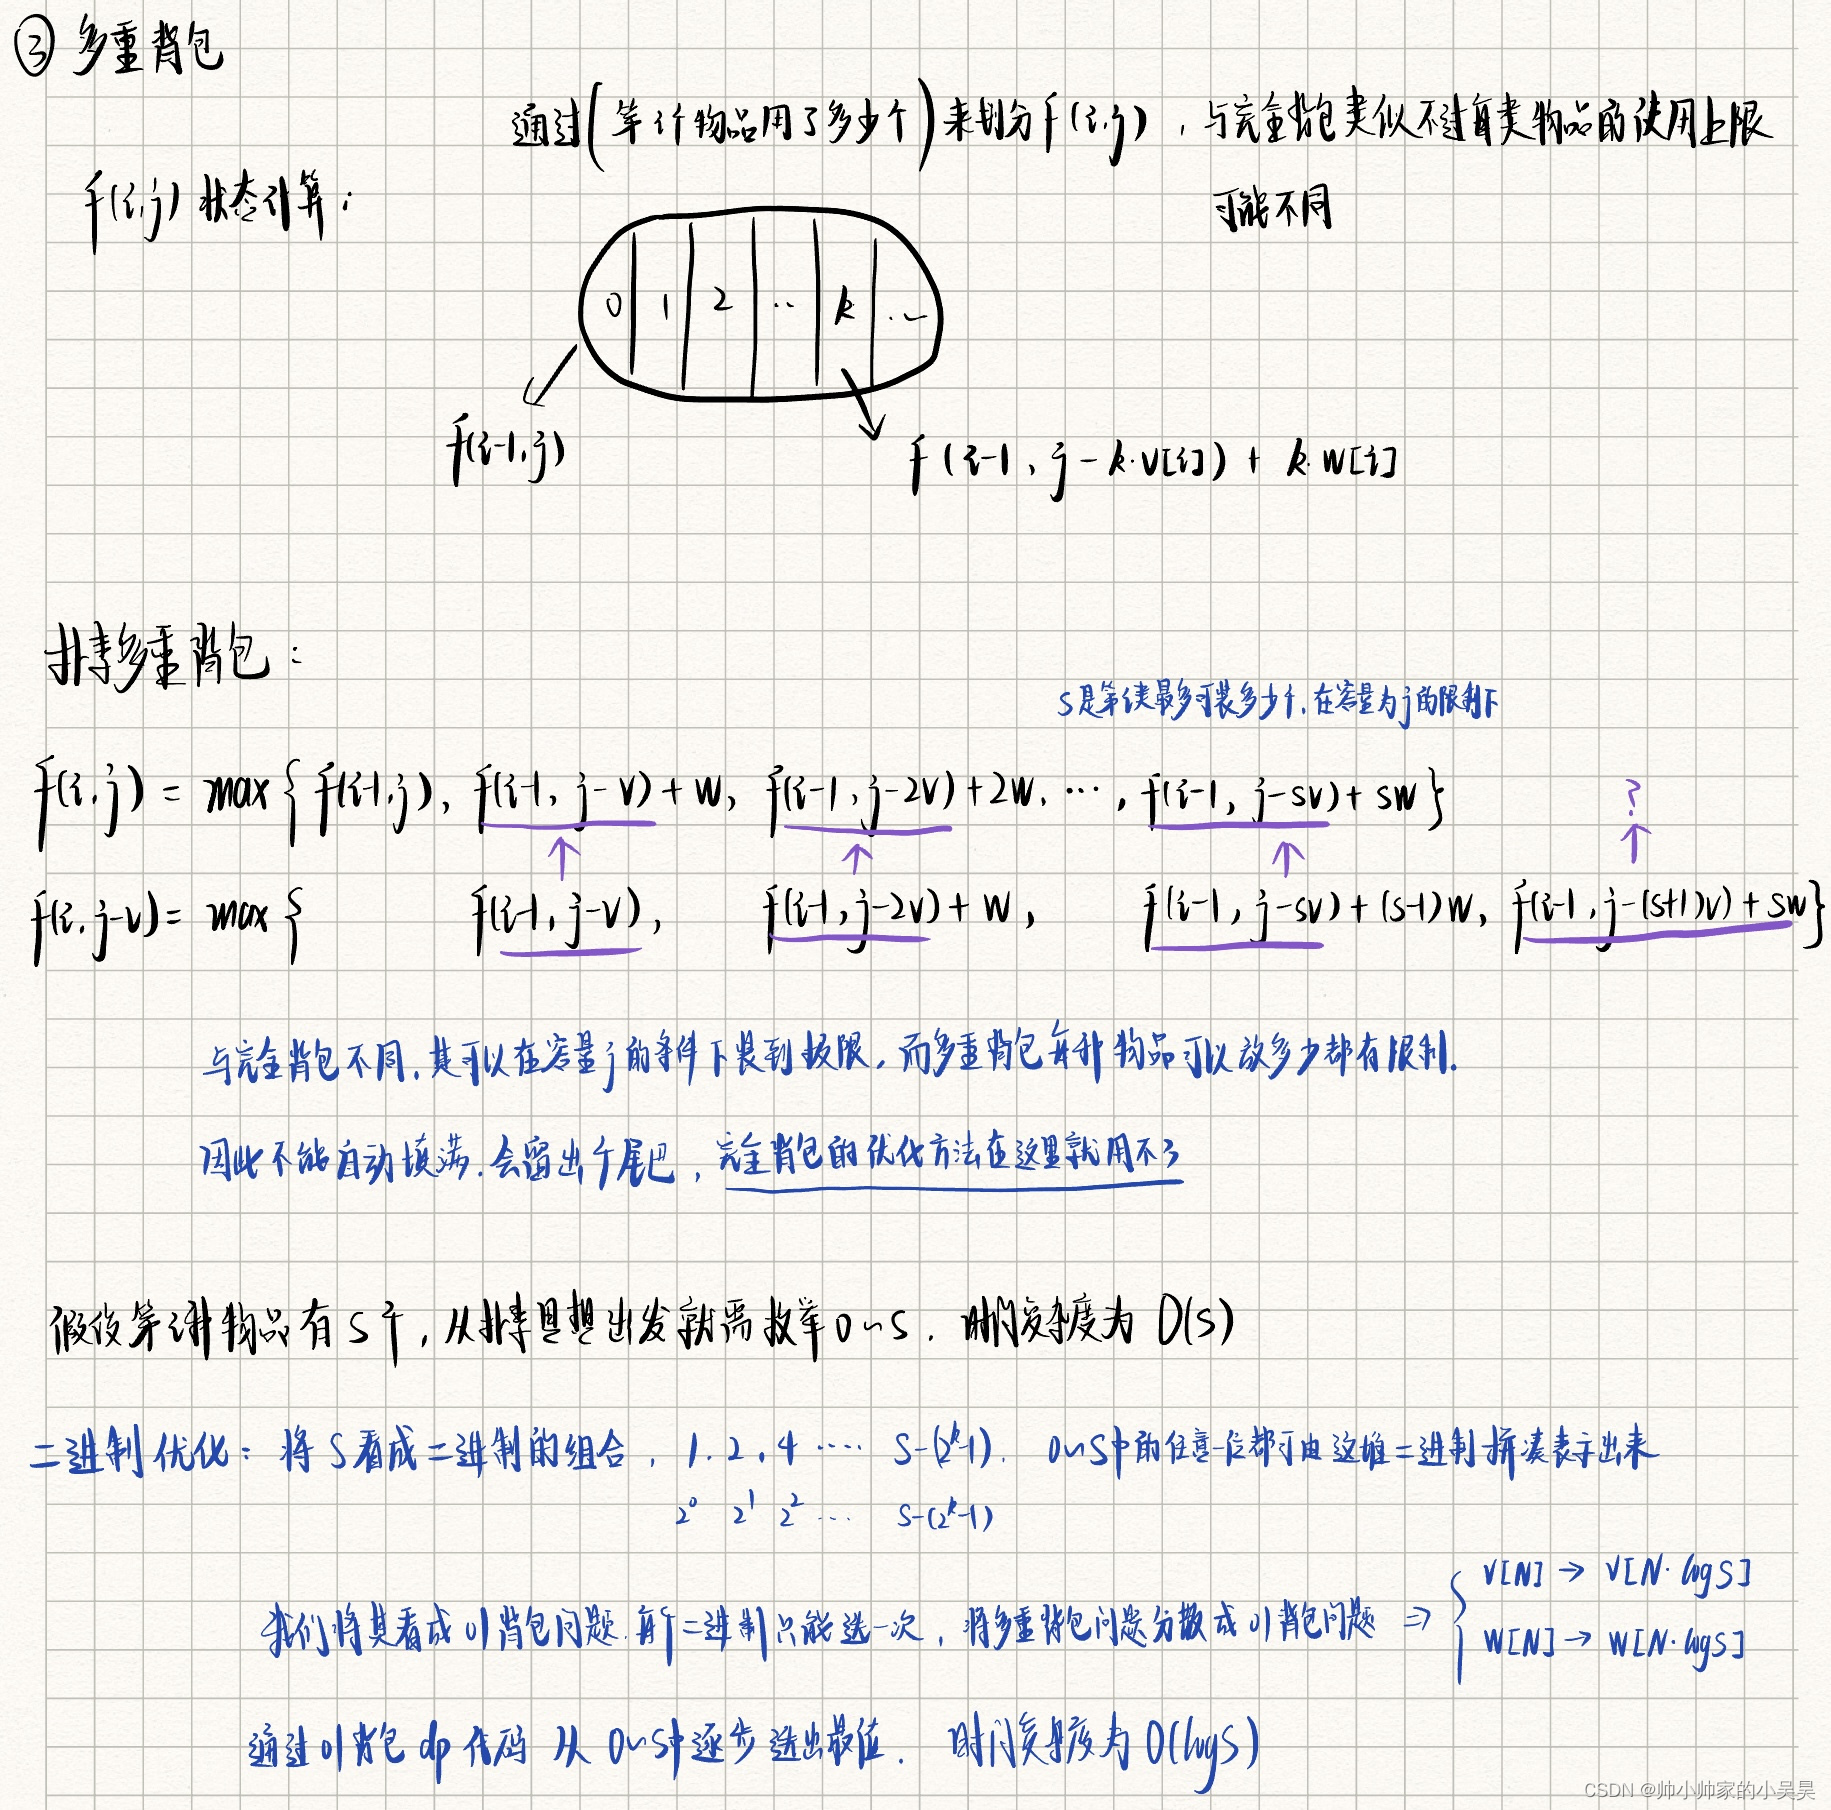 ③ 多重背包
通过(第i个物品用了多少个)来划分f(i,j),与完全背包类似不过每类物品的使用上限
可能不同
f(i,j) 状态计算:
0 1 2 .. k ...
f(i-1,j)
f(i-1, j-k·v[i]) + k·w[i]
朴素多重背包:
s是第i类最多可装多少个,在容量为j的限制下
f(i,j) = max{ f(i-1,j), f(i-1, j-v)+w, f(i-1, j-2v)+2w, ···, f(i-1, j-sv)+sw } ?
f(i, j-v) = max{ f(i-1, j-v), f(i-1, j-2v)+w, f(i-1, j-sv)+(s-1)w, f(i-1, j-(s+1)v)+sw }
与完全背包不同,其可以在容量j的条件下装到极限,而多重背包每种物品可以放多少都有限制.
因此不能自动填满.会留出个尾巴,完全背包的优化方法在这里就用不了
假设第i种物品有s个,从朴素思想出发就需枚举0~s. 时间复杂度为 O(s)
二进制优化: 将S看成二进制的组合, 1. 2. 4 ···· S-(2^k-1). 0~S中的任意一位都可由这堆二进制拼凑表示出来
2^0 2^1 2^2 ··· S-(2^k-1)
我们将其看成01背包问题.每个二进制只能选一次,将多重背包问题分散成01背包问题 ⇒ { V[N] → V[N·logS]
W[N] → W[N·logS]
通过01背包dp代码 从0~S中逐步选出最值. 时间复杂度为 O(logS)
CSDN @帅小帅家的小吴昊